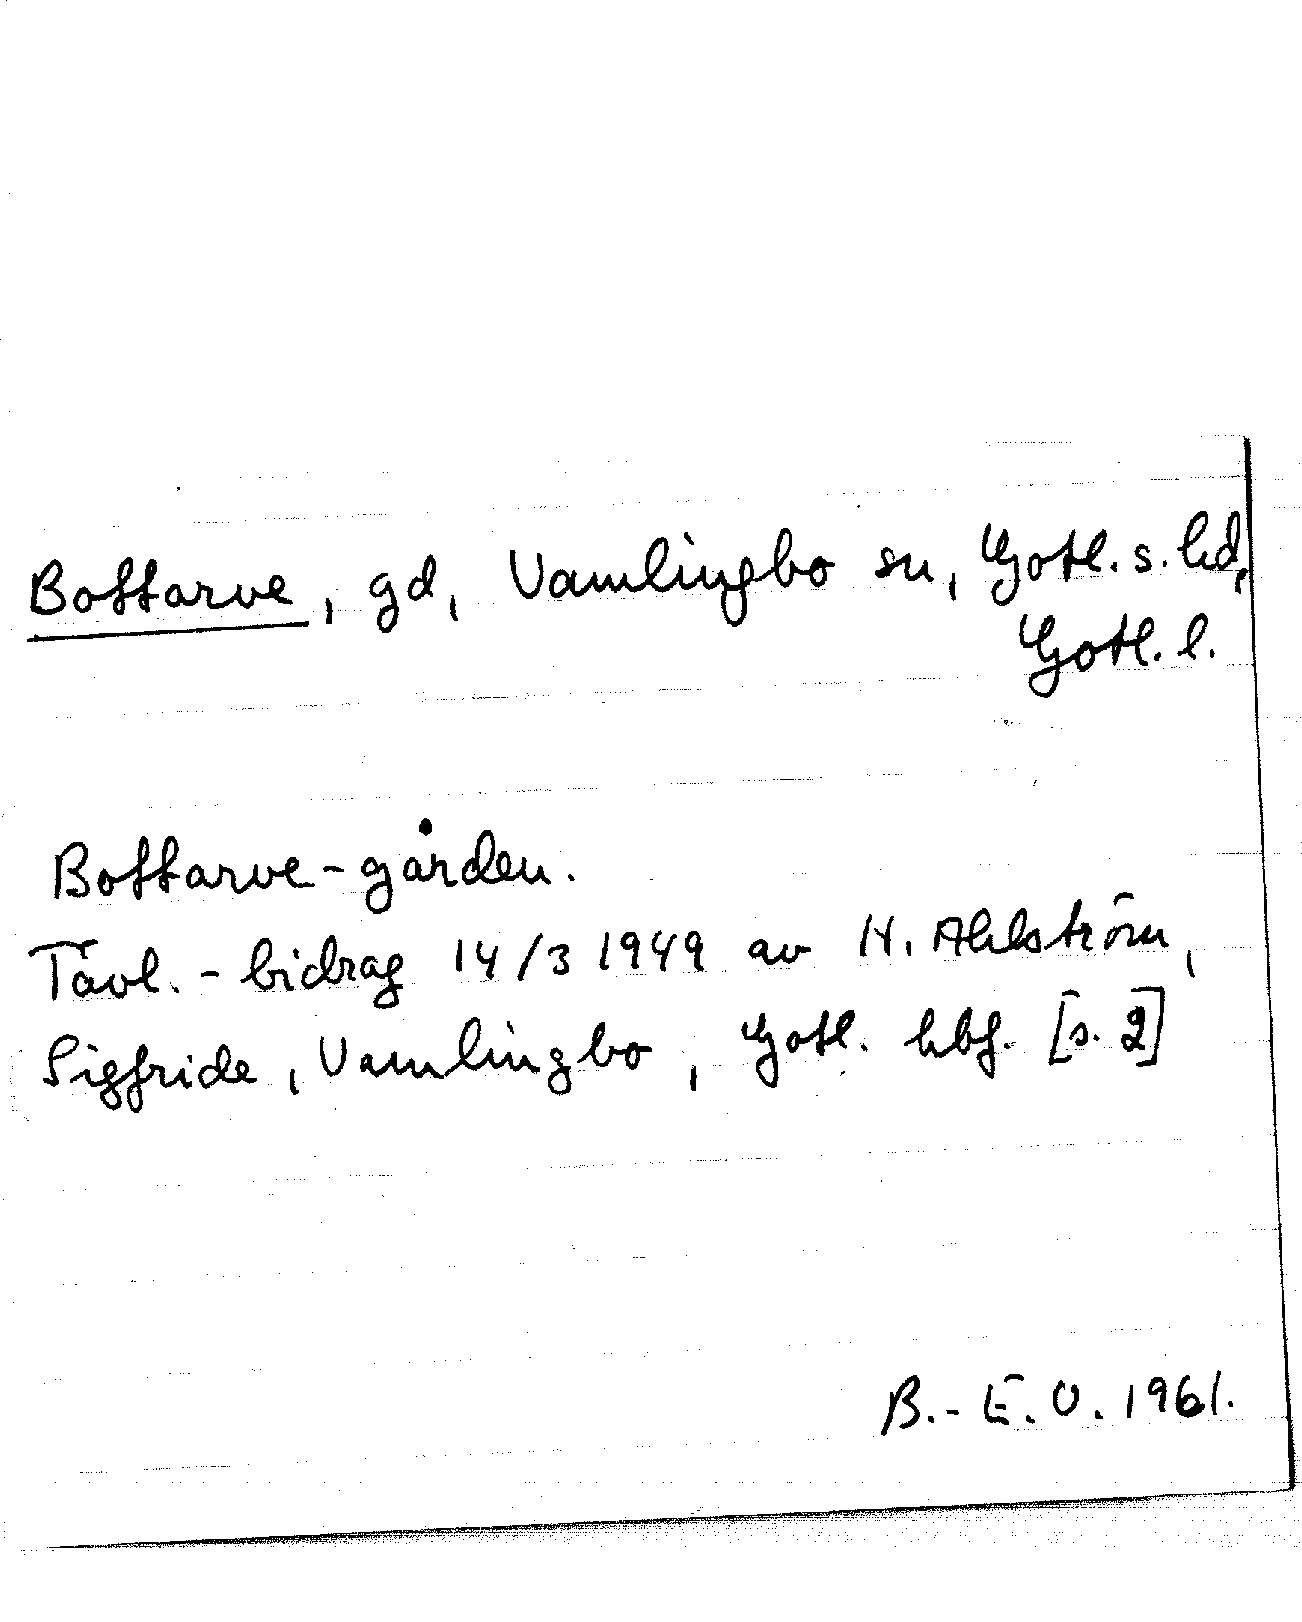 Bottarve, gd, Vamlingbo sn, Gotl. s. hd,
Gotl. l.
Bottarve-gården.
Tävl.-bidrag 14/3 1949 av H. Ahlström,
Sigfride, Vamlingbo, Gotl. hbf. [s. 2]
B.-E. O. 1961.